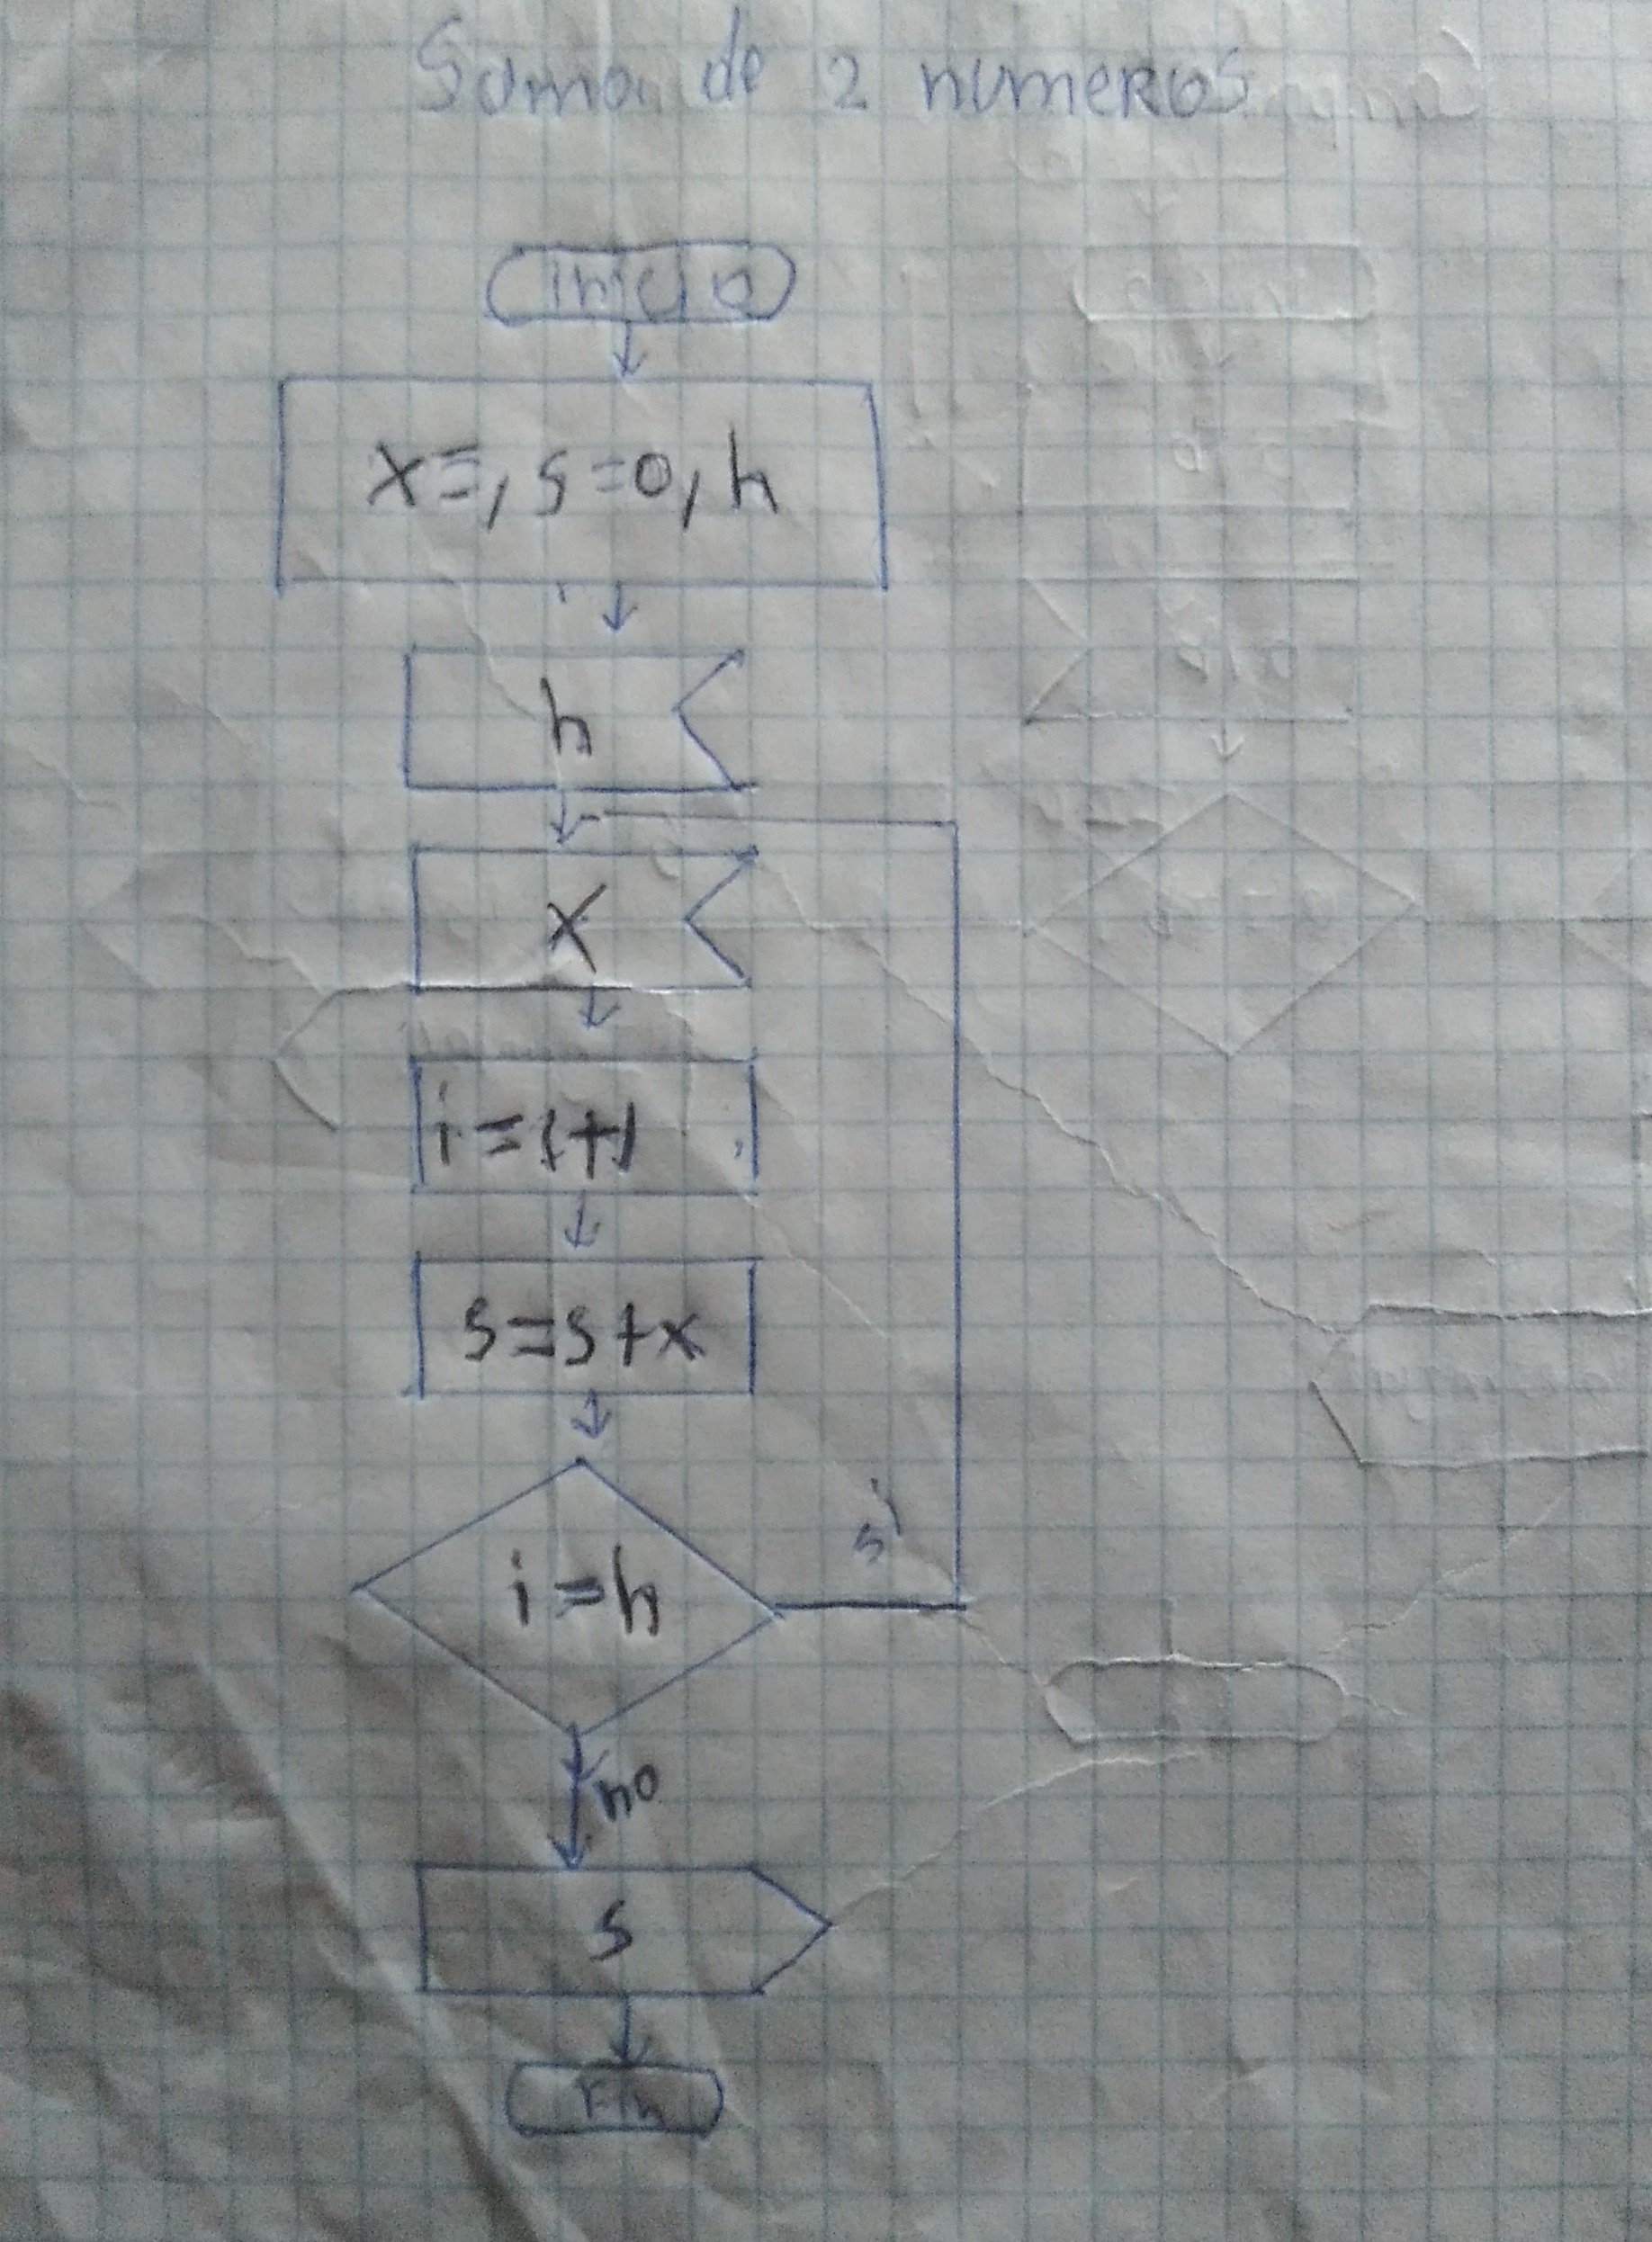 Suma de 2 numeros
inicio
x=, s=0, h
h
x
i=i+1
s=s+x
i=h
si
no
s
Fin